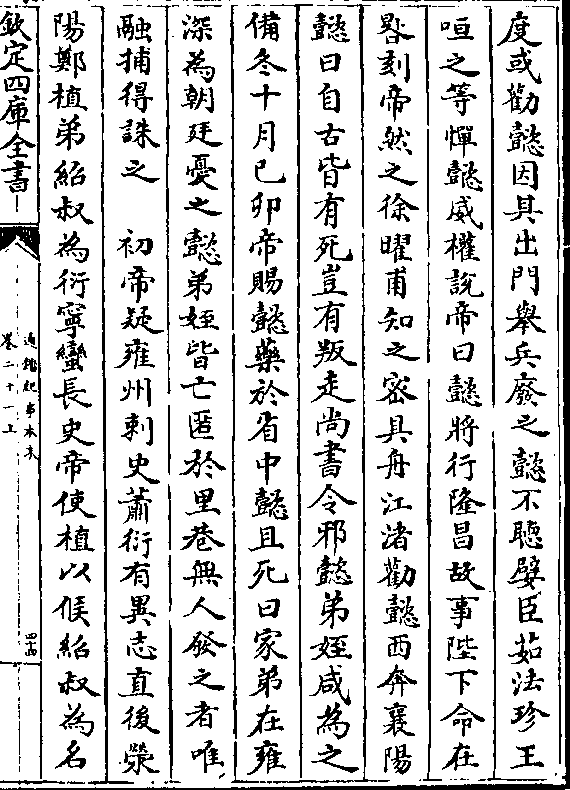 度或勸懿因其出門舉兵廢之懿不聽嬖臣茹法珍王
咺之等憚懿威權說帝曰懿將行隆昌故事陛下命在
晷刻帝然之徐曜甫知之密具舟江渚勸懿西奔襄陽
懿曰自古皆有死豈有叛走尚書令邪懿弟姪咸為之
備冬十月己卯帝賜懿藥於省中懿且死曰家弟在雍
深為朝廷憂之懿弟姪皆亡匿於里巷無人發之者唯
融捕得誅之　初帝疑雍州刺史蕭衍有異志直後滎
陽鄭植弟紹叔為衍寧蠻長史帝使植以候紹叔為名
欽定四庫全書
通鑑紀事本末
卷二十一上
四十四